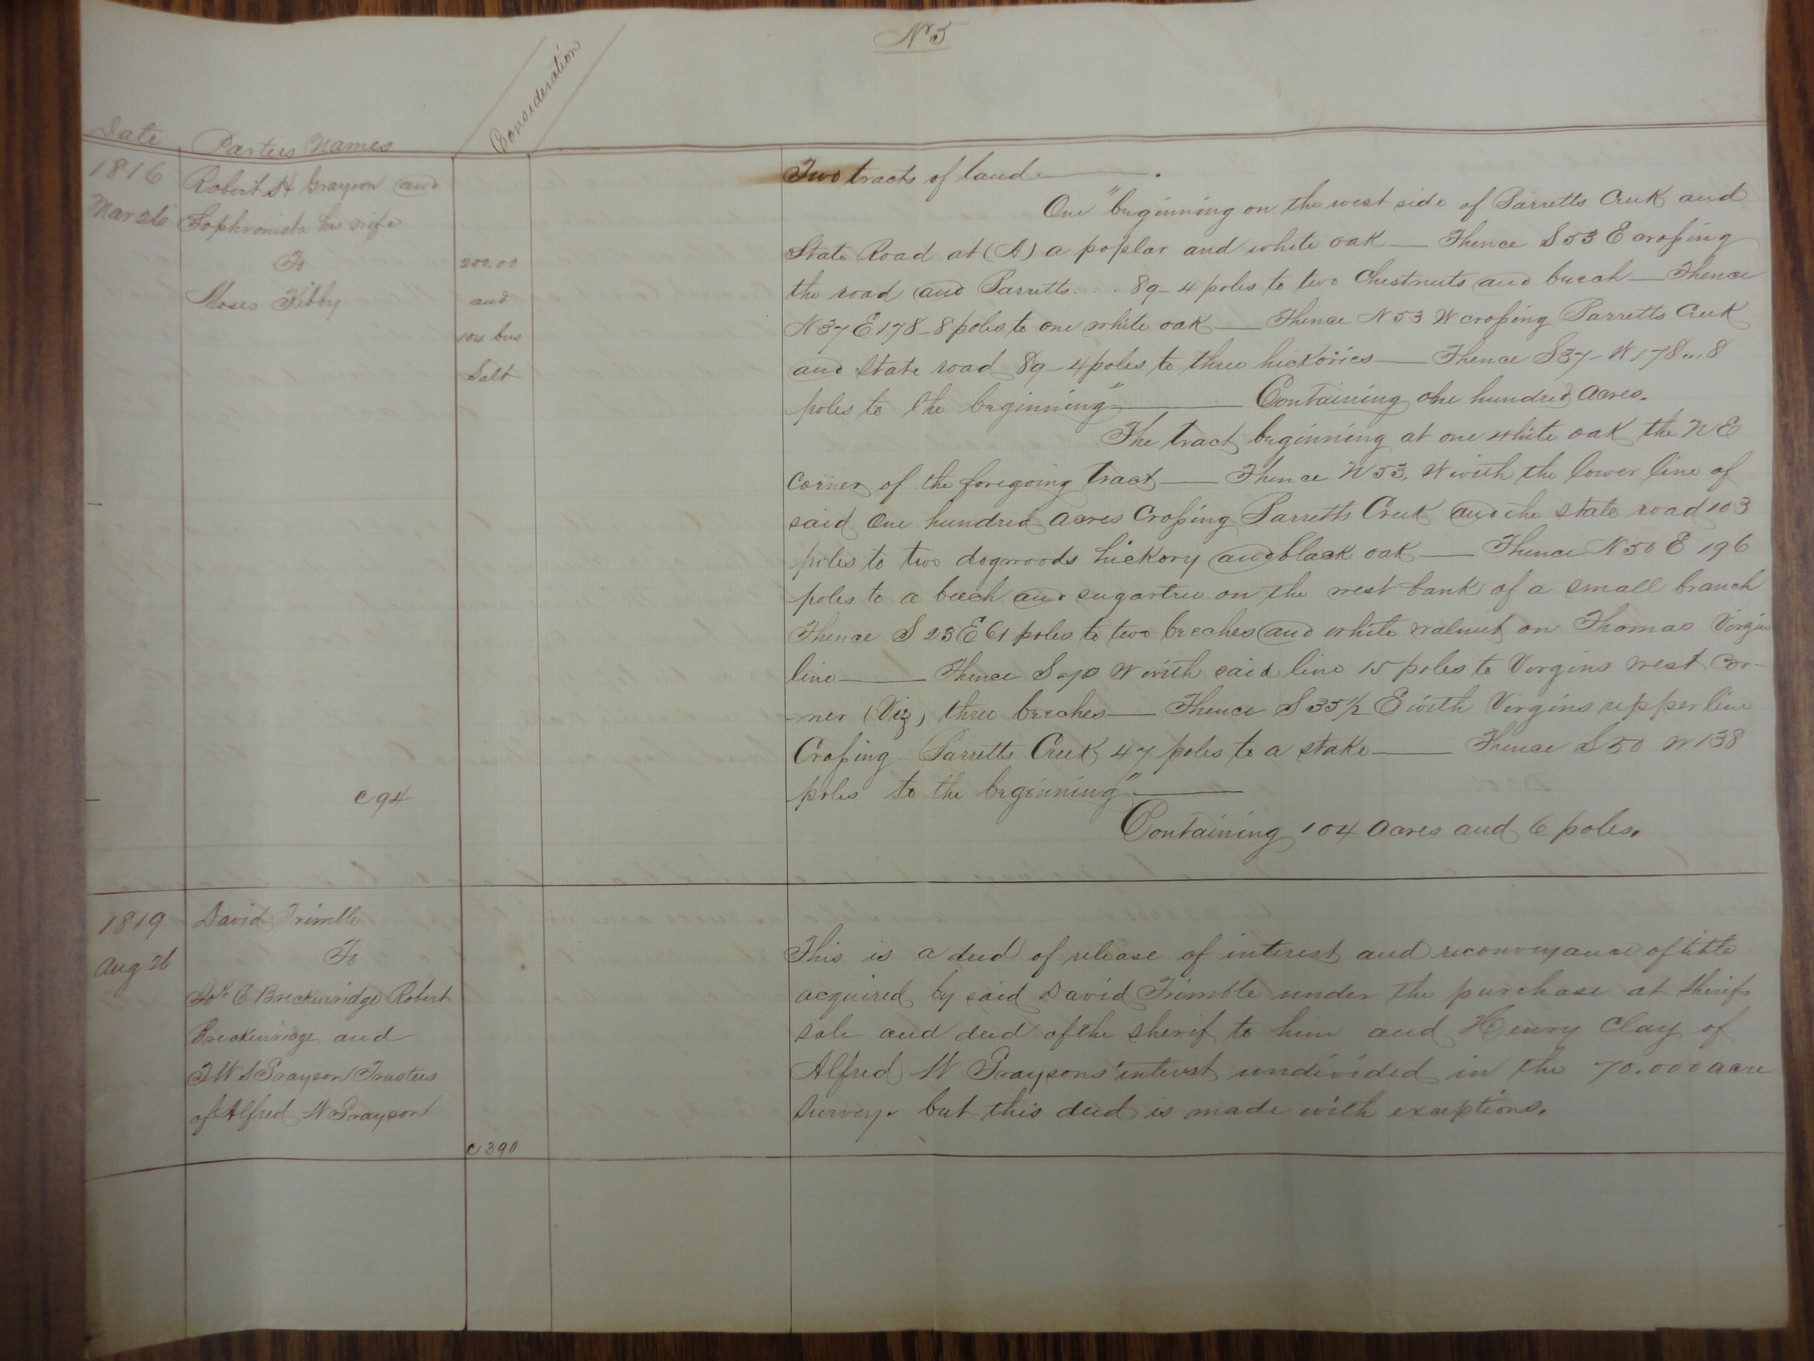 No 5
Date
Parties Names
Consideration
1816
Mar 26
Robert H Grayson and
Sophronista his wife
To
Moses Kibby
202.00
and
104 bus
Salt
Two tracts of land
One "beginning on the west side of Parretts Creek and
State Road at (A) a poplar and white oak — Thence S 53 E crossing
the road and Parretts .... 89-4 poles to two Chestnuts and beech — Thence
N 37 E 178-8 poles to one white oak — Thence N 53 W crossing Parretts Creek
and State road 89-4 poles to three hickories — Thence S 37-W 178..8
poles to the beginning" — Containing one hundred acres.
The tract beginning at one white oak the N E
corner of the foregoing tract — Thence N 53. W with the lower line of
said One hundred acres Crossing Parretts Creek and the state road 103
poles to two dogwoods hickory and black oak — Thence N 50 E 196
poles to a beech and sugartree on the west bank of a small branch
Thence S 23 E 61 poles to two beeches and white walnut on Thomas Virgin
line — Thence S 70 W with said line 15 poles to Virgins west cor-
-ner (Viz) three beeches — Thence S 35 1/2 E with Virgins upper line
Crossing Parretts Creek 47 poles to a stake — Thence S 50 W 138
poles to the beginning" —
C 94
Containing 104 acres and 6 poles.
1819
Aug 26
David Trimble
To
Jos C Breckinridge Robert
Breckinridge and
F W S Grayson Trustees
of Alfred W Grayson
C 390
This is a deed of release of interest and reconveyance of title
acquired by said David Trimble under the purchase at sherifs
sale and deed of the sherif to him and Henry Clay of
Alfred W Graysons' interest undivided in the 70.000 acre
survey. but this deed is made with exceptions.